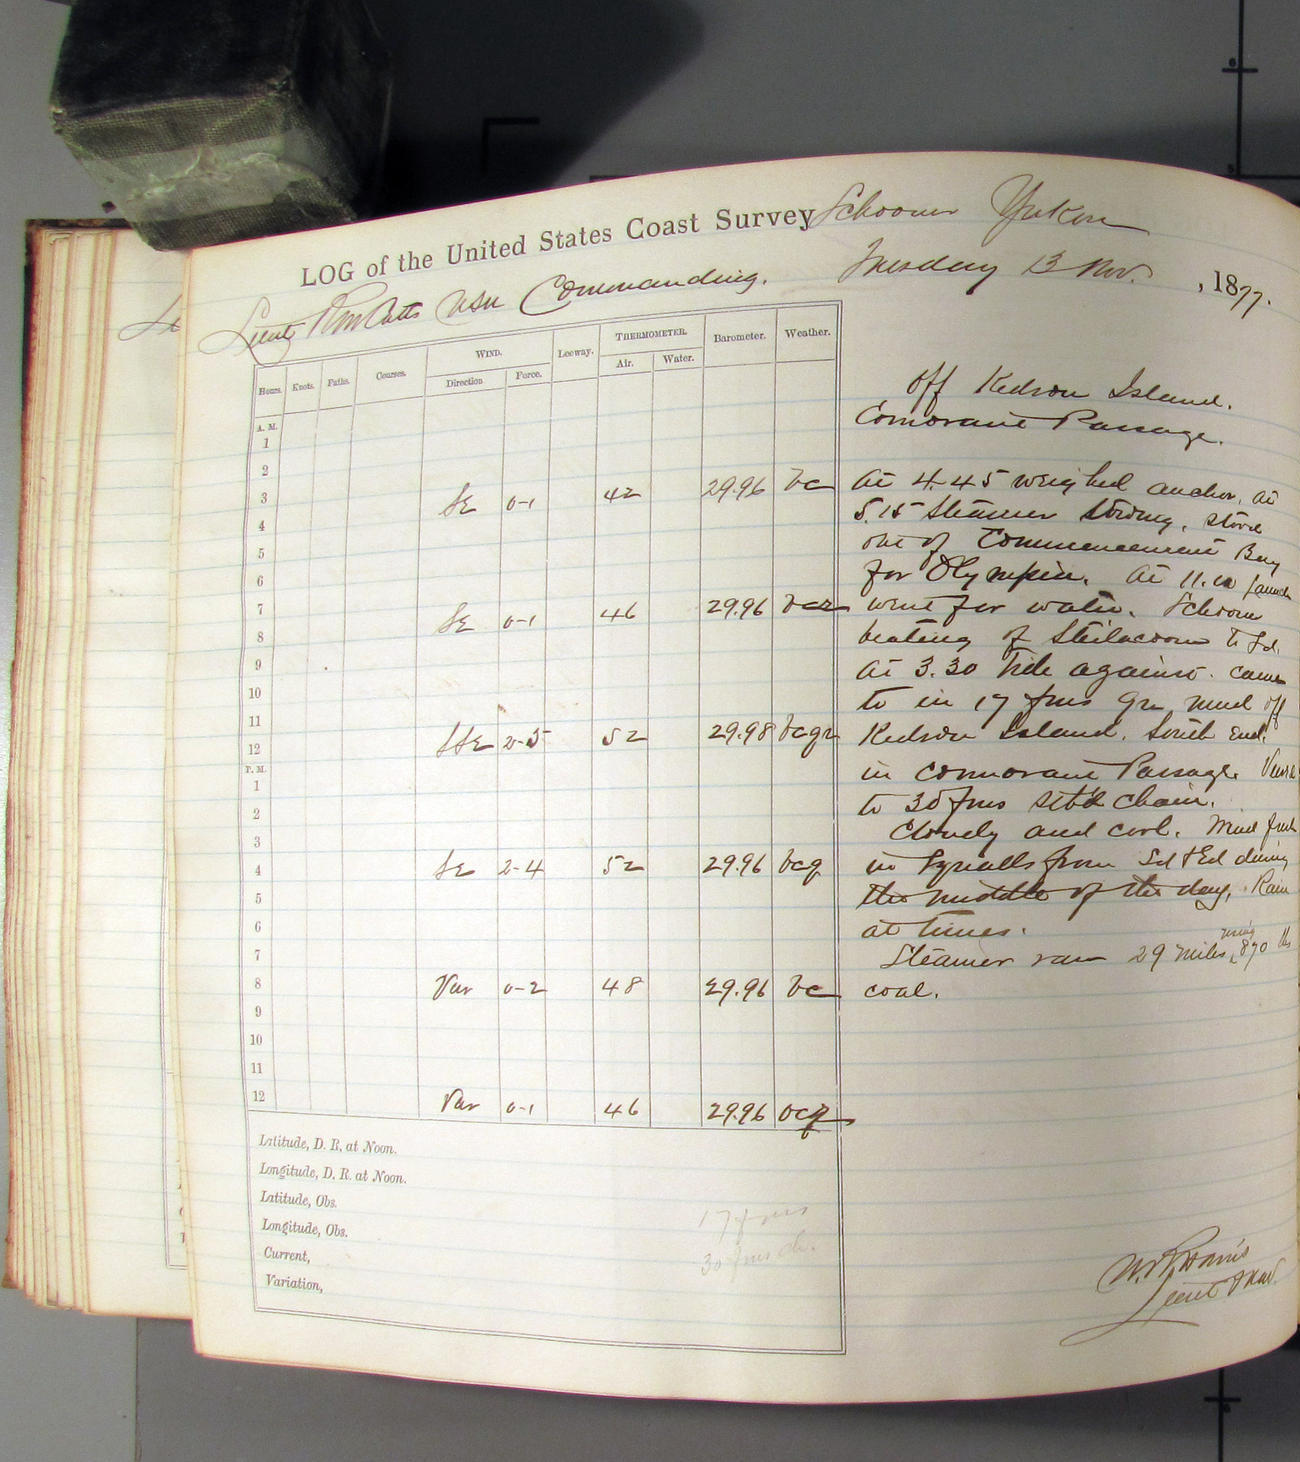 LOG of the United States Coast Survey Schooner Yukon
Lieut Commanding. Tuesday 13 Nov. , 1877.
Hours. Knots. Faths. Courses. WIND. Leeway. THERMOMETER. Barometer. Weather.
Direction Force. Air. Water.
off Ketron Island.
Comorant Passage.
A. M.
1
2
3
SE 0-1 42 29.96 bc
At 4.45 weighed anchor. at
4
5.15 Steamer strong, stood
5
out of Commencement Bay
6
for Olympia. At 11.10 launch
7
SE 0-1 46 29.96
went for water. Schooner
8
beating off Steilacoom to Sd.
9
At 3.30 tide against. came
10
to in 17 fms Gn mud off
11
12
SSE 2-5 52 29.98
Island. South End.
P. M.
in Cormorant Passage. Veered
1
to 30 fms stb'd chain.
2
Cloudy and cool. Wind fresh
3
4
SE 2-4 52 29.96 bcq
in squalls from Sd & Ed during
5
the middle of the day. Rain
6
at times.
7
Steamer ran 29 miles, using 870 lbs
8
Var 0-2 48 29.96 bc
coal.
9
10
11
12
Var 0-1 46 29.96
Latitude, D. R. at Noon.
Longitude, D. R. at Noon.
Latitude, Obs.
Longitude, Obs.
Current,
Variation,
17 fms
30 fms ch.
Lieut